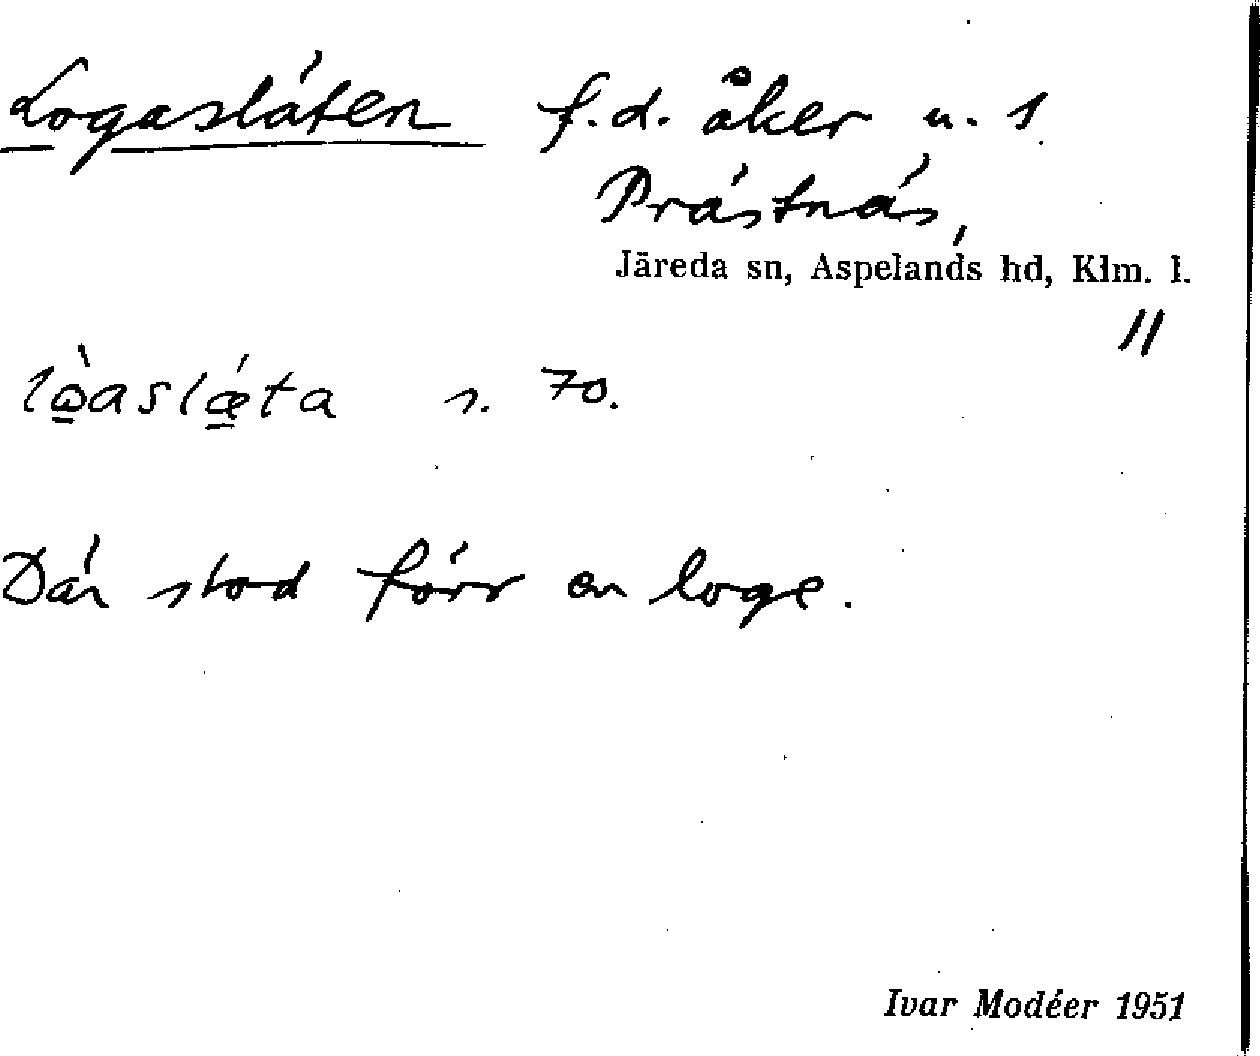 Logaslä́ten f.d. åker u. 1
Prästnäs,
Järeda sn, Aspelands hd, Klm. l.
11
s. 70.
Där stod förr en loge.
Ivar Modéer 1951